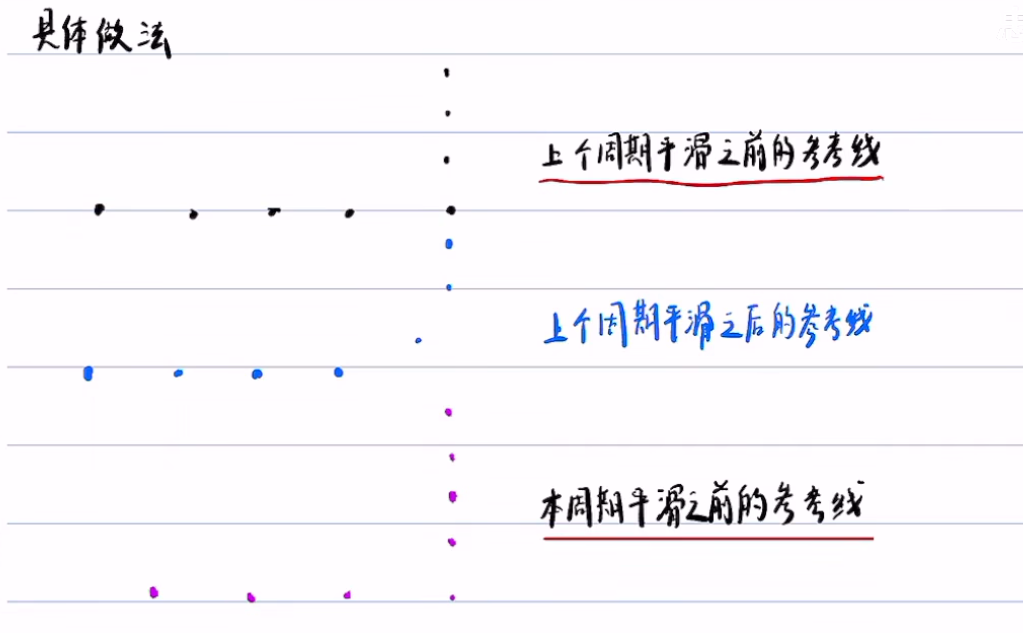 具体做法
上个周期平滑之前的参考线
上个周期平滑之后的参考线
本周期平滑之前的参考线